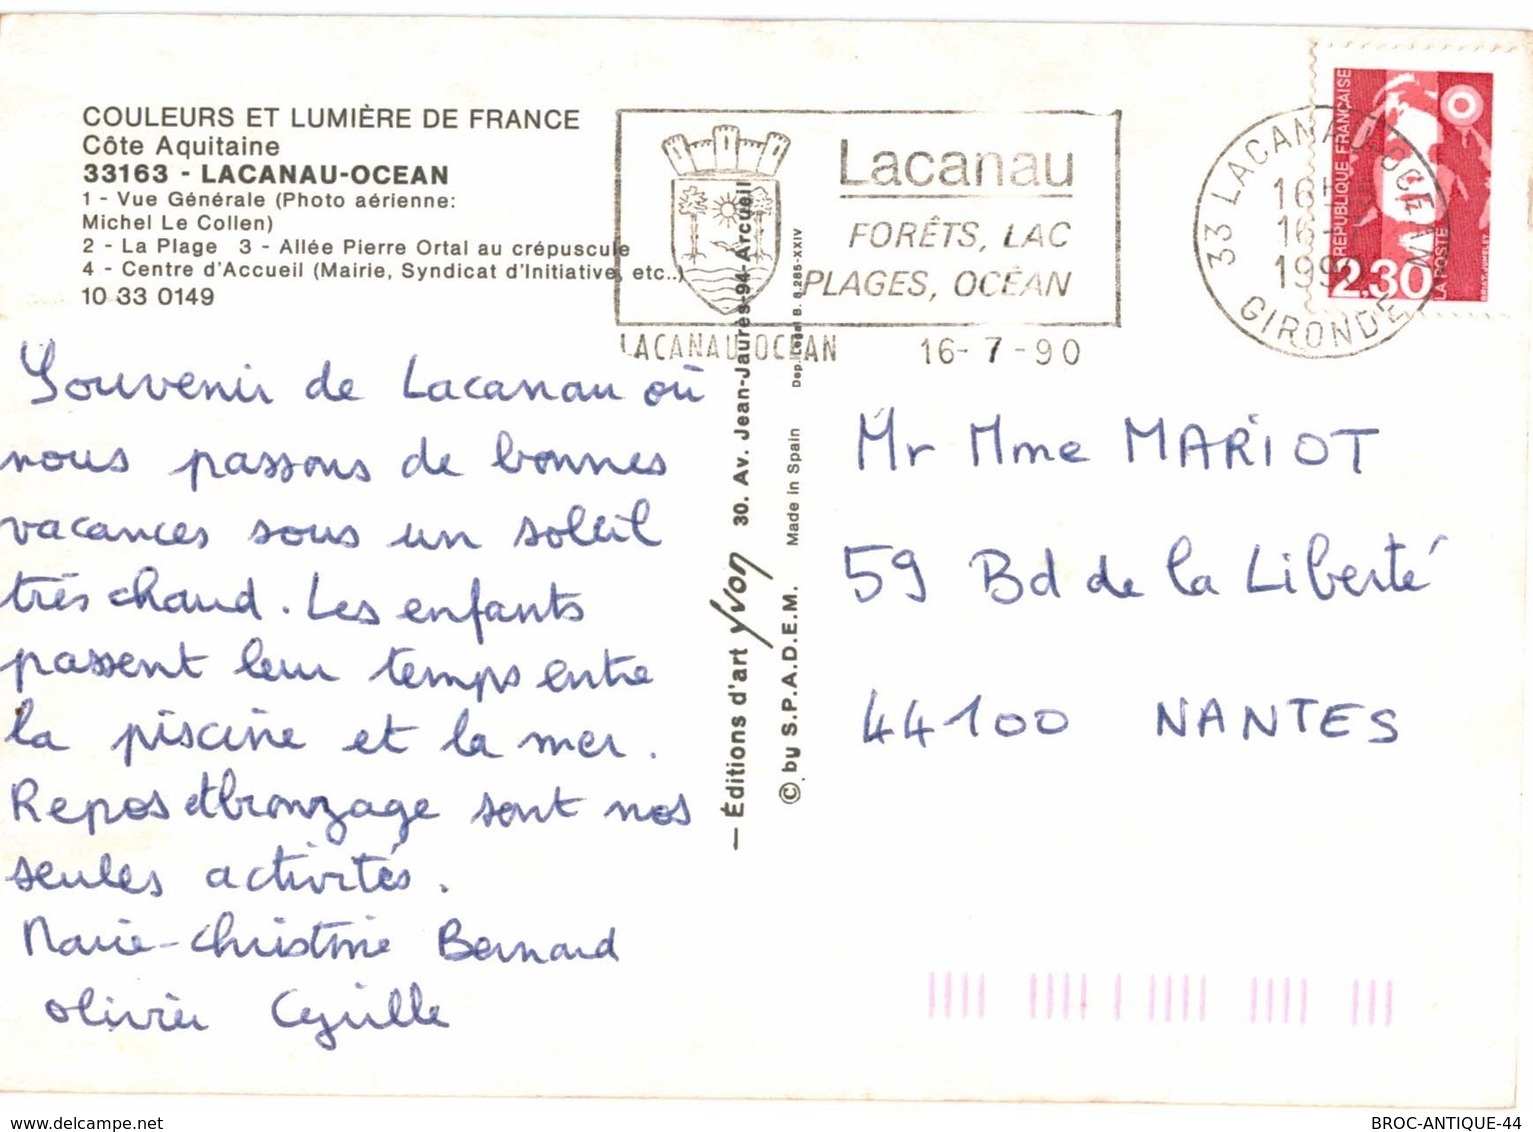 COULEURS ET LUMIÈRE DE FRANCE
Côte Aquitaine
33163 - LACANAU-OCEAN
1 - Vue Générale (Photo aérienne:
Michel Le Collen)
2 - La Plage 3 - Allée Pierre Ortal au crépuscule
4 - Centre d'Accueil (Mairie, Syndicat d'Initiative, etc..)
10 33 0149
Lacanau
FORÊTS, LAC
PLAGES, OCÉAN
LACANAU-OCEAN 16-7-90
33 LACANAU OCEAN
16-
1990
GIRONDE
RÉPUBLIQUE FRANÇAISE
2,30
LA POSTE
Souvenir de Lacanau où
nous passons de bonnes
vacances sous un soleil
très chaud. Les enfants
passent leur temps entre
la piscine et la mer.
Repos et bronzage sont nos
seules activités.
Marie-Christine Bernard
Olivier Cyrille
— Éditions d'art Yvon 30. Av. Jean-Jaurès-94-Arcueil
© by S.P.A.D.E.M. Made in Spain Dep. Legal B. 6.285-XXIV
Mr Mme MARIOT
59 Bd de la Liberté
44100 NANTES
www.delcampe.net
BROC-ANTIQUE-44